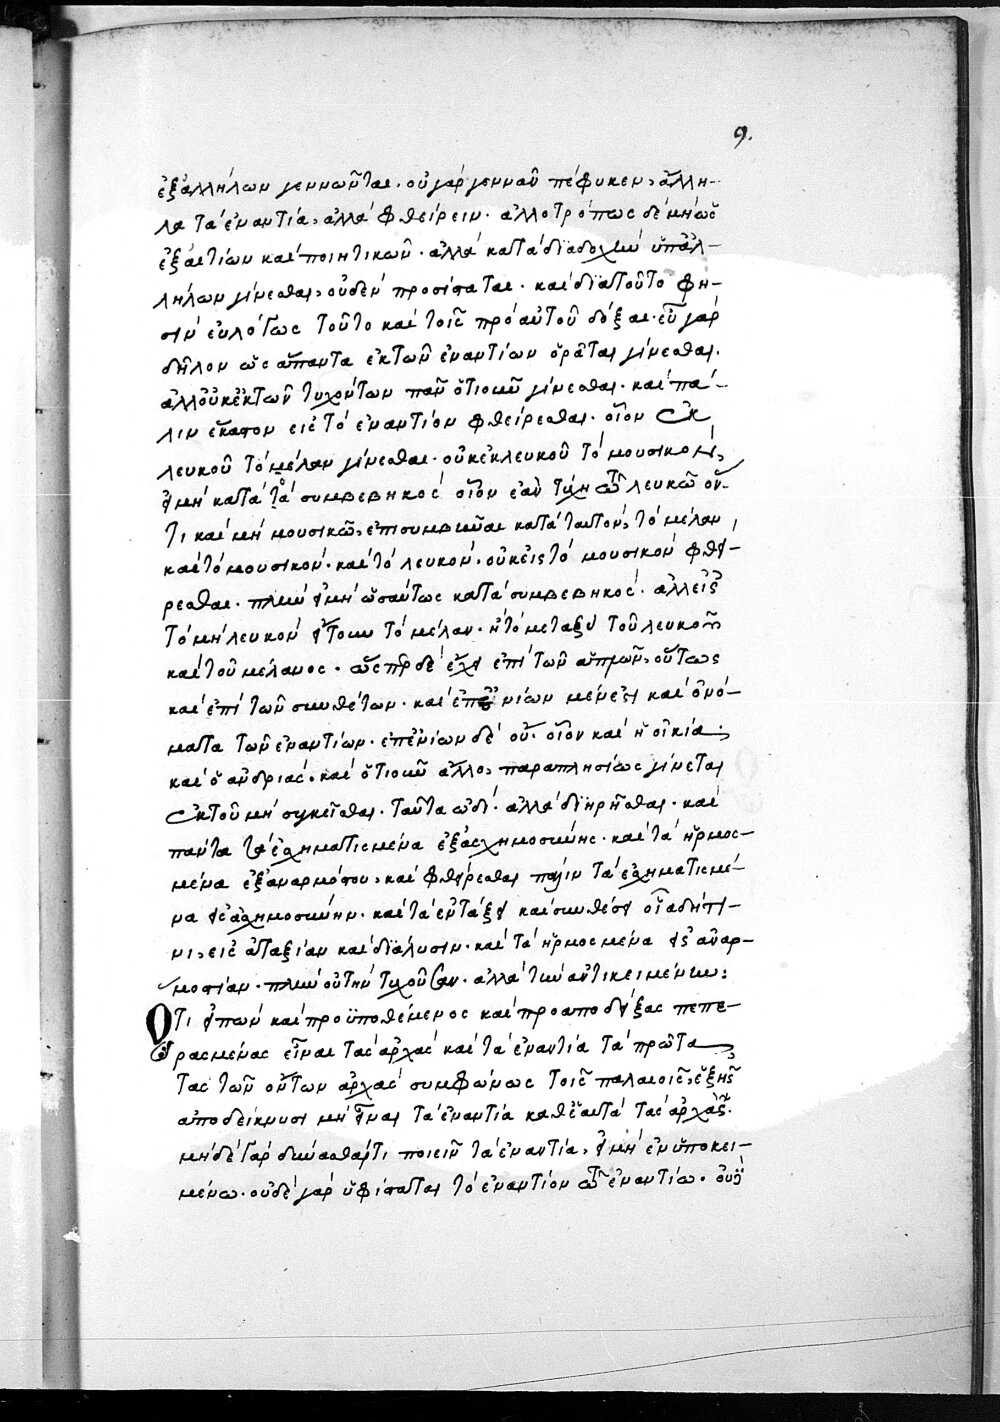 9.
ἐξαλλήλων γεννῶνται. οὐ γὰρ γεννᾶν πέφυκεν, ἄλλη-
λα τὰ ἐναντία, ἀλλὰ φθείρειν. ἀλλοτρόπως δὲ μὴ ὡς
ἐξ αἰτίων καὶ ποιητικῶν. ἀλλὰ κατὰ διαδοχὴν ὑπαλ-
λήλων γίνεσθαι, οὐδὲν προσίσταται. καὶ διατοῦτο φη-
σὶν εὐλόγως τοῦτο καὶ τοῖς πρὸ αὐτοῦ δόξαι. εὖ γὰρ
δῆλον ὡς ἅπαντα ἐκ τῶν ἐναντίων ὁρᾶται γίνεσθαι.
ἀλλοὐκ ἐκ τῶν τυχόντων πᾶν ὁτιοῦν γίνεσθαι. καὶ πά-
λιν ἕκαστον εἰς τὸ ἐναντίον φθείρεσθαι. οἷον ἐκ
λευκοῦ τὸ μέλαν γίνεσθαι. οὐκ ἐκ λευκοῦ τὸ μουσικὸν,
εἰ μὴ κατὰ τὸ συμβεβηκός οἷον ἐὰν τύχῃ τῷ λευκῷ ὄν-
τι καὶ μὴ μουσικῷ, ἐπισυμβῆναι κατὰ ταὐτὸν, τὸ μέλαν
καὶ τὸ μουσικόν. καὶ τὸ λευκόν. οὐκ εἰς τὸ μουσικὸν φθεί-
ρεσθαι. πλὴν εἰ μὴ ὡσαύτως κατὰ συμβεβηκός. ἀλλ εἰς
τὸ μὴ λευκὸν ἤτοι τὸ μέλαν. ἢ τὸ μεταξὺ τοῦ λευκοῦ
καὶ τοῦ μέλανος. ὥσπερ δὲ ἔχει ἐπὶ τῶν ἁπλῶν, οὕτως
καὶ ἐπὶ τῶν συνθέτων. καὶ ἐπ ἐνίων μέν ἐστι καὶ ὀνό-
ματα τῶν ἐναντίων. ἐπ ἐνίων δὲ οὔ. οἷον καὶ ἡ οἰκία,
καὶ ὁ ἀνδριάς. καὶ ὁτιοῦν ἄλλο, παραπλησίως γίνεται
ἐκ τοῦ μὴ συγκεῖσθαι. ταῦτα ὡδὶ. ἀλλὰ διῃρῆσθαι. καὶ
πάντα τὰ ἐσχηματισμένα ἐξ ἀσχημοσύνης. καὶ τὰ ἡρμοσ-
μένα ἐξ ἀναρμόστου. καὶ φθείρεσθαι πάλιν τὰ ἐσχηματισμέ-
να εἰς ἀσχημοσύνην. καὶ τὰ ἐν τάξει καὶ συνθέσει οἷα δήτι-
νι, εἰς ἀταξίαν καὶ διάλυσιν. καὶ τὰ ἡρμοσμένα εἰς ἀναρ-
μοστίαν. πλὴν οὐ τὴν τυχοῦσαν. ἀλλὰ τὴν ἀντικειμένην:
Ὅτι εἰπὼν καὶ προϋποθέμενος καὶ προαποδείξας πεπε-
ρασμένας εἶναι τὰς ἀρχὰς καὶ τὰ ἐναντία τὰ πρῶτα,
τὰς τῶν ὄντων ἀρχὰς συμφώνως τοῖς παλαιοῖς, ἑξῆς
ἀποδείκνυσι μὴ εἶναι τὰ ἐναντία καθ ἑαυτὰ τὰς ἀρχάς.
μηδὲ γὰρ δύνασθαί τι ποιεῖν τὰ ἐναντία, εἰ μὴ ἐν ὑποκει-
μένω. οὐδὲ γὰρ ὑφίσταται τὸ ἐναντίον τῷ ἐναντίω. οὐδ